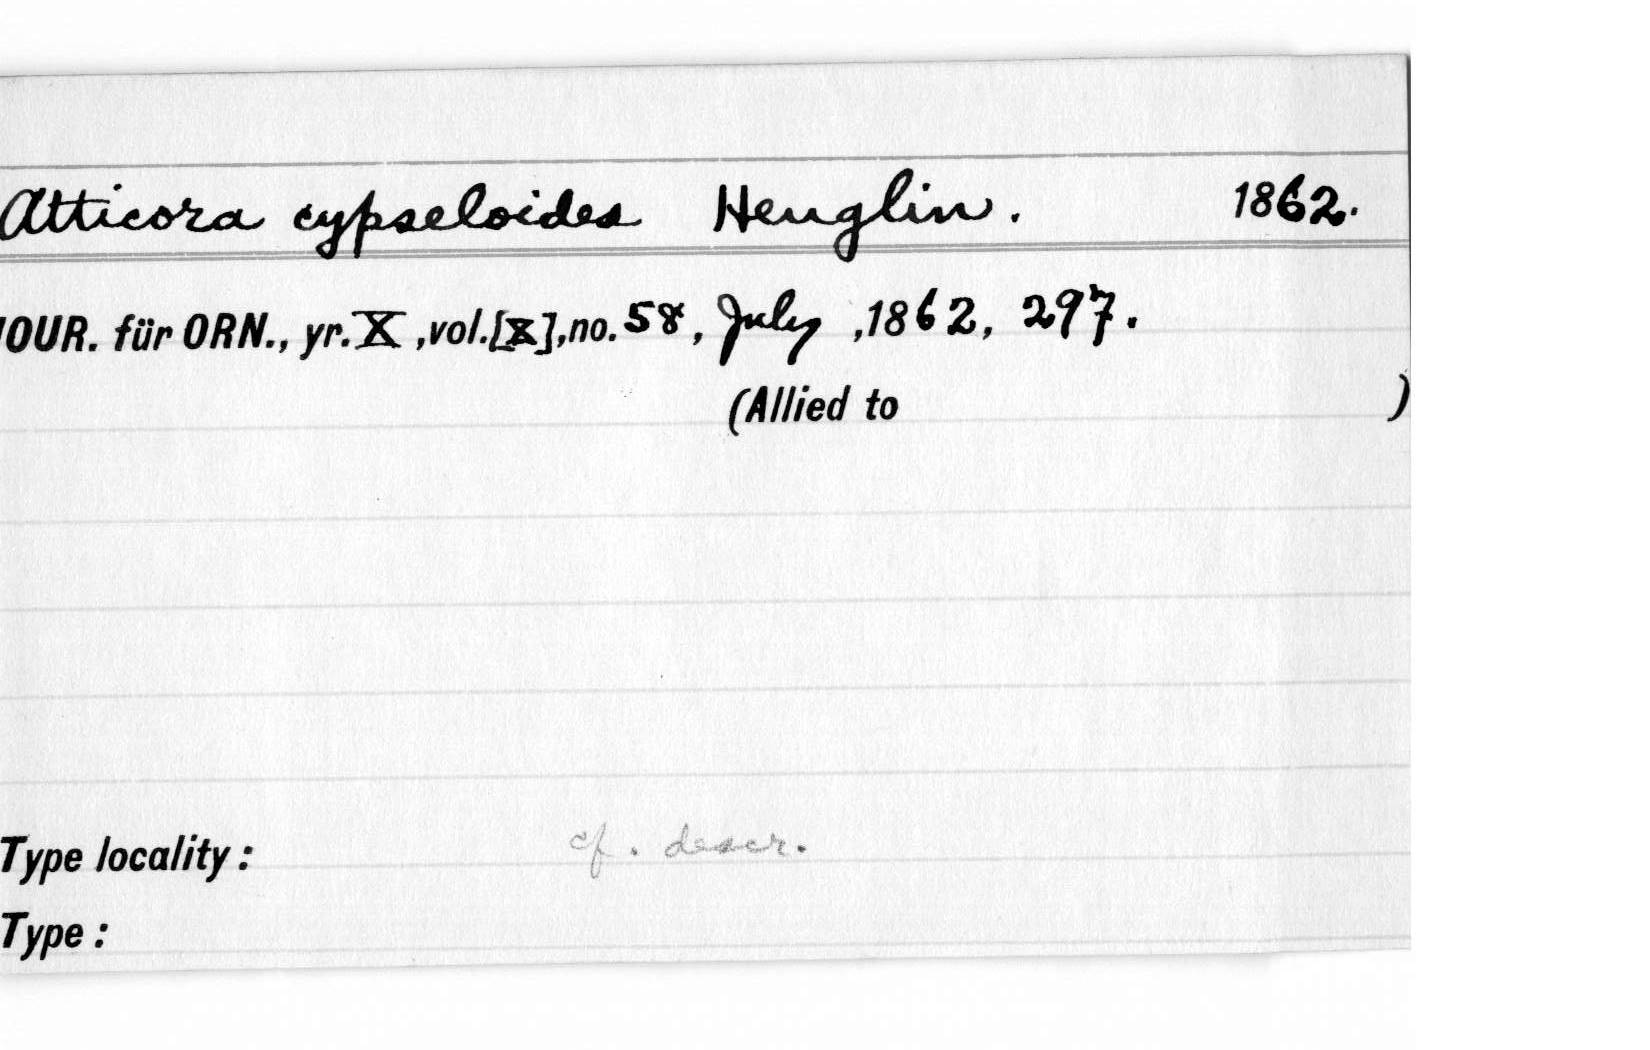 Atticora cypseloides Heuglin. 1862.
JOUR. für ORN., yr. X ,vol.[X],no. 58, July ,1862, 297.
(Allied to )
Type locality : cf. descr.
Type :